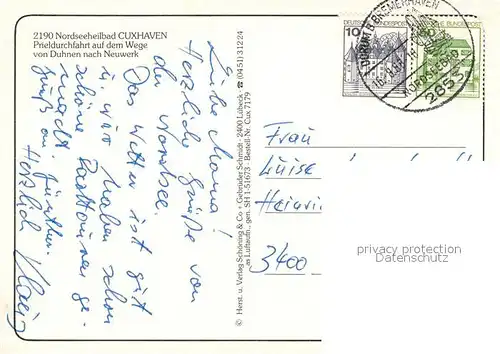 2190 Nordseeheilbad CUXHAVEN
Prieldurchfahrt auf dem Wege
von Duhnen nach Neuwerk
Liebe Mama!
Herzliche Grüße von
der Nordsee.
Das Wetter ist gut
u. wir haben schon
schöne Radtouren ge-
macht.
Gruß an Günther.
Herzlich
© Herst. u. Verlag Schöning & Co · Gebrüder Schmidt · 2400 Lübeck · ☎ (0451) 31224
gen. SH 1-51673 - Bestell-Nr. Cux 7179
10
DEUTSCHE BUNDESPOST
DORUM B BREMERHAVEN
NORDSEEBAD
2853
Frau
Luise
Heinri
3400
privacy protection
Datenschutz